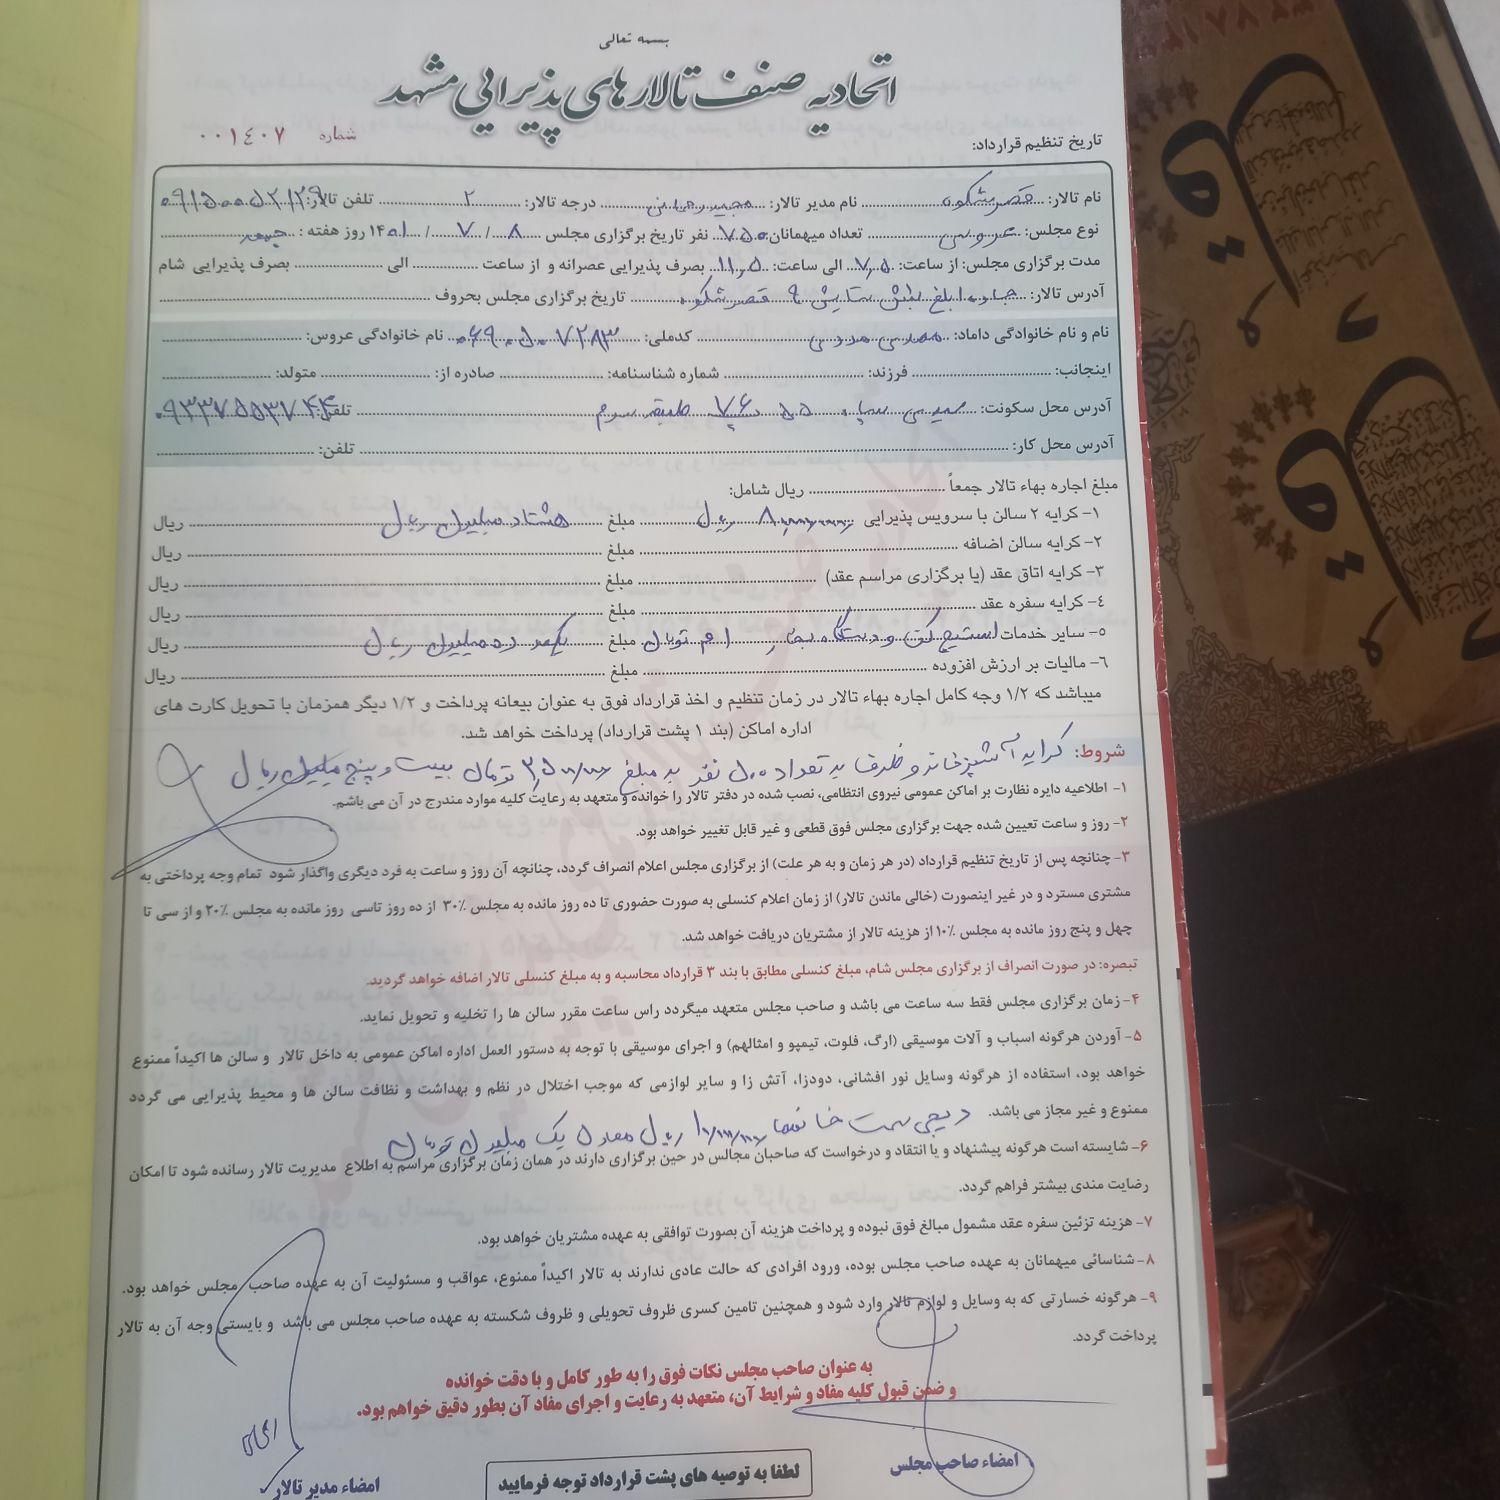 بسمه تعالی
اتحادیه صنف تالارهای پذیرایی مشهد
شماره ۰۰۱۴۰۷
تاریخ تنظیم قرارداد:
نام تالار: قصر شکوه نام مدیر تالار: مجید رحمانی درجه تالار: ۲ تلفن تالار: ۰۹۱۵۰۰۵۲۱۲۹
نوع مجلس: عروسی تعداد میهمانان ۷۵۰ نفر تاریخ برگزاری مجلس ۸ / ۷ / ۱۴۰۱ روز هفته: جمعه
مدت برگزاری مجلس: از ساعت: ۷٫۵ الی ساعت: ۱۱٫۵ بصرف پذیرایی عصرانه و از ساعت الی بصرف پذیرایی شام
آدرس تالار: جاده ابلغ نبش ستایش ۹ قصر شکوه تاریخ برگزاری مجلس بحروف
نام و نام خانوادگی داماد: کدملی: ۰۶۹۰۵۰۷۲۸۳ نام خانوادگی عروس:
اینجانب: فرزند: شماره شناسنامه: صادره از: متولد:
آدرس محل سکونت: ۵۵ پ ۷۶ طبقه سوم تلفن: ۰۹۳۳۷۵۵۳۷۴۴
آدرس محل کار: تلفن:
مبلغ اجاره بهاء تالار جمعاً ریال شامل:
۱- کرایه ۲ سالن با سرویس پذیرایی ۸۰٫۰۰۰٫۰۰۰ ریال مبلغ هشتاد میلیون ریال ریال
۲- کرایه سالن اضافه مبلغ ریال
۳- کرایه اتاق عقد (یا برگزاری مراسم عقد) مبلغ ریال
۴- کرایه سفره عقد مبلغ ریال
۵- سایر خدمات استیج کف و دستگاه بخار ۱ م تومان مبلغ ده میلیون ریال ریال
۶- مالیات بر ارزش افزوده مبلغ ریال
میباشد که ۱/۲ وجه کامل اجاره بهاء تالار در زمان تنظیم و اخذ قرارداد فوق به عنوان بیعانه پرداخت و ۱/۲ دیگر همزمان با تحویل کارت های
اداره اماکن (بند ۱ پشت قرارداد) پرداخت خواهد شد.
شروط: کرایه آشپزخانه و ظرف به تعداد ۵۰۰ نفر به مبلغ ۲٫۵۰۰٫۰۰۰ تومان بیست و پنج میلیون ریال
۱- اطلاعیه دایره نظارت بر اماکن عمومی نیروی انتظامی، نصب شده در دفتر تالار را خوانده و متعهد به رعایت کلیه موارد مندرج در آن می باشم.
۲- روز و ساعت تعیین شده جهت برگزاری مجلس فوق قطعی و غیر قابل تغییر خواهد بود.
۳- چنانچه پس از تاریخ تنظیم قرارداد (در هر زمان و به هر علت) از برگزاری مجلس اعلام انصراف گردد، چنانچه آن روز و ساعت به فرد دیگری واگذار شود تمام وجه پرداختی به
مشتری مسترد و در غیر اینصورت (خالی ماندن تالار) از زمان اعلام کنسلی به صورت حضوری تا ده روز مانده به مجلس ۳۰٪ از ده روز تاسی روز مانده به مجلس ۲۰٪ و از سی تا
چهل و پنج روز مانده به مجلس ۱۰٪ از هزینه تالار از مشتریان دریافت خواهد شد.
تبصره: در صورت انصراف از برگزاری مجلس شام، مبلغ کنسلی مطابق با بند ۳ قرارداد محاسبه و به مبلغ کنسلی تالار اضافه خواهد گردید.
۴- زمان برگزاری مجلس فقط سه ساعت می باشد و صاحب مجلس متعهد میگردد راس ساعت مقرر سالن ها را تخلیه و تحویل نماید.
۵- آوردن هرگونه اسباب و آلات موسیقی (ارگ، فلوت، تیمپو و امثالهم) و اجرای موسیقی با توجه به دستور العمل اداره اماکن عمومی به داخل تالار و سالن ها اکیداً ممنوع
خواهد بود، استفاده از هرگونه وسایل نور افشانی، دودزا، آتش زا و سایر لوازمی که موجب اختلال در نظم و بهداشت و نظافت سالن ها و محیط پذیرایی می گردد
ممنوع و غیر مجاز می باشد. دیجی سمت خانمها ۱۰٫۰۰۰٫۰۰۰ ریال معادل یک میلیون تومان
۶- شایسته است هرگونه پیشنهاد و یا انتقاد و درخواست که صاحبان مجالس در حین برگزاری دارند در همان زمان برگزاری مراسم به اطلاع مدیریت تالار رسانده شود تا امکان
رضایت مندی بیشتر فراهم گردد.
۷- هزینه تزئین سفره عقد مشمول مبالغ فوق نبوده و پرداخت هزینه آن بصورت توافقی به عهده مشتریان خواهد بود.
۸- شناسائی میهمانان به عهده صاحب مجلس بوده، ورود افرادی که حالت عادی ندارند به تالار اکیداً ممنوع، عواقب و مسئولیت آن به عهده صاحب مجلس خواهد بود.
۹- هرگونه خسارتی که به وسایل و لوازم تالار وارد شود و همچنین تامین کسری ظروف تحویلی و ظروف شکسته به عهده صاحب مجلس می باشد و بایستی وجه آن به تالار
پرداخت گردد.
به عنوان صاحب مجلس نکات فوق را به طور کامل و با دقت خوانده
و ضمن قبول کلیه مفاد و شرایط آن، متعهد به رعایت و اجرای مفاد آن بطور دقیق خواهم بود.
امضاء صاحب مجلس
لطفا به توصیه های پشت قرارداد توجه فرمایید
امضاء مدیر تالار